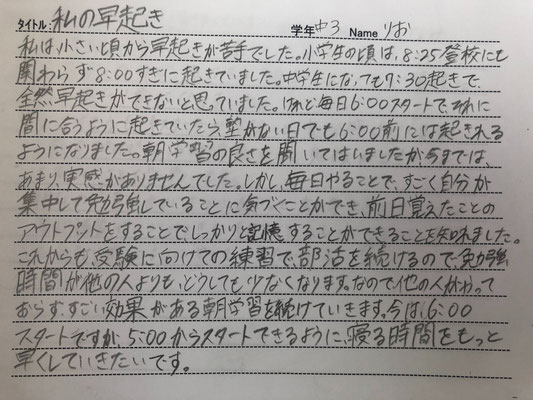 タイトル: 私の早起き 学年 中3 Name りお
私は小さい頃から早起きが苦手でした。小学生の頃は、8:25登校にも
関わらず8:00すぎに起きていました。中学生になっても7:30起きで、
全然早起きができないと思っていました。けれど毎日6:00スタートで、それに
間に合うように起きていたら、塾がない日でも6:00前には起きれる
ようになりました。朝学習の良さを聞いてはいましたが今までは、
あまり、実感がありませんでした。しかし、毎日やることで、すごく自分が
集中して勉強していることに気づくことができ、前日覚えたことの
アウトプットをすることで、しっかり記憶することができることを知れました。
これからも、受験に向けての練習で、部活を続けるので、勉強
時間が他の人よりも、どうしても少なくなります。なので他の人がやって
おらず、すごい効果がある朝学習を続けていきます。今は、6:00
スタートですが、5:00からスタートできるように、寝る時間をもっと
早くしていきたいです。